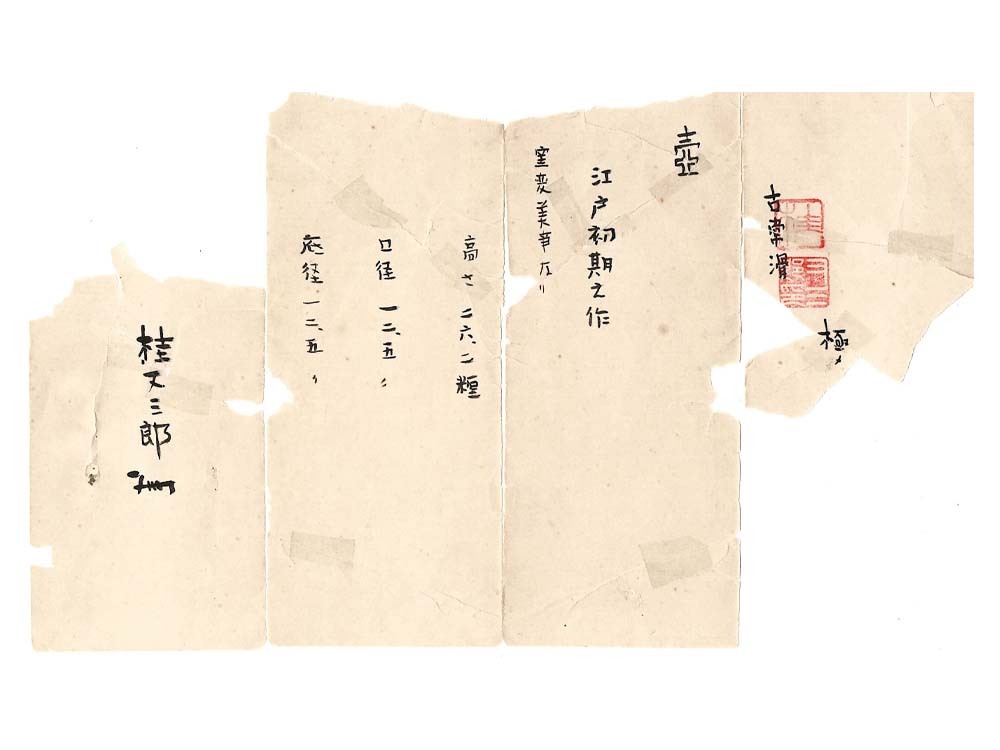 極
古常滑
壺
江戸初期之作
窯変美事
高さ 二六、二糎
口径 一二、五〃
底径 一二、五〃
桂又三郎